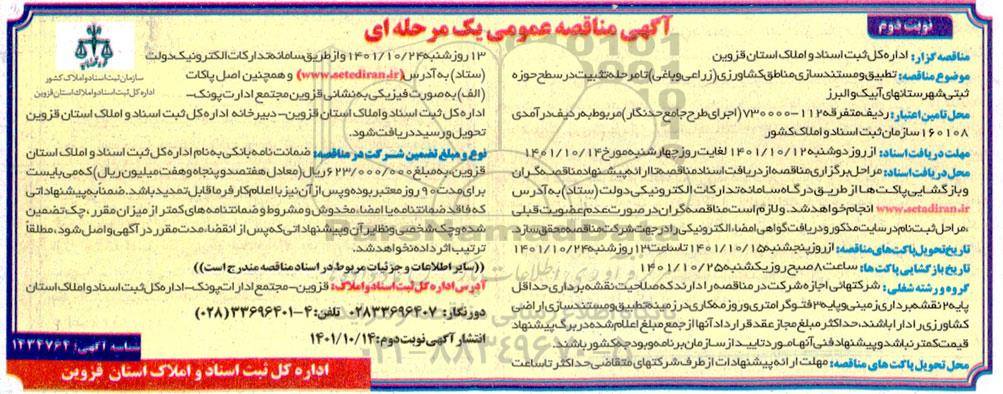 نوبت دوم
آگهی مناقصه عمومی یک مرحله ای
مناقصه گزار: اداره کل ثبت اسناد و املاک استان قزوین
موضوع مناقصه: تطبیق و مستندسازی مناطق کشاورزی (زراعی و باغی) تا مرحله تثبیت در سطح حوزه
ثبتی شهرستانهای آبیک و البرز
محل تامین اعتبار: ردیف متفرقه ۱۱۲-۷۳۰۰۰۰ (اجرای طرح جامع حدنگار) مربوط به ردیف درآمدی
۱۶۰۱۰۸ سازمان ثبت اسناد و املاک کشور
مهلت دریافت اسناد: از روز دوشنبه ۱۴۰۱/۱۰/۱۲ لغایت روز چهارشنبه مورخ ۱۴۰۱/۱۰/۱۴
محل دریافت اسناد: مراحل برگزاری مناقصه از دریافت اسناد مناقصه تا ارائه پیشنهاد مناقصه گران
و بازگشایی پاکت ها از طریق درگاه سامانه تدارکات الکترونیکی دولت (ستاد) به آدرس
www.setadiran.ir انجام خواهد شد. و لازم است مناقصه گران در صورت عدم عضویت قبلی
، مراحل ثبت نام در سایت مذکور و دریافت گواهی امضاء الکترونیکی را در جهت شرکت مناقصه محقق سازد
تاریخ تحویل پاکت های مناقصه: از روز پنجشنبه ۱۴۰۱/۱۰/۱۵ تا ساعت ۱۳ روز شنبه ۱۴۰۱/۱۰/۲۴
تاریخ بازگشایی پاکت ها: ساعت ۸ صبح روز یکشنبه ۱۴۰۱/۱۰/۲۵
گروه و رشته شغلی: شرکتهائی اجازه شرکت در مناقصه را دارند که صلاحیت نقشه برداری حداقل
پایه ۲ نقشه برداری زمینی و پایه ۳ فتوگرامتری و رزومه کاری در زمینه تطبیق و مستندسازی اراضی
کشاورزی را دارا باشند، حداکثر مبلغ مجاز عقد قرارداد آنها از جمع مبلغ اعلام شده در برگ پیشنهاد
قیمت کمتر نباشد و پیشنهاد فنی آنها مورد تایید از سازمان برنامه و بودجه کشور باشند.
محل تحویل پاکت های مناقصه: مهلت ارائه پیشنهادات از طرف شرکتهای متقاضی حداکثر تا ساعت
۱۳ روز شنبه ۱۴۰۱/۱۰/۲۴ و از طریق سامانه تدارکات الکترونیک دولت
(ستاد) به آدرس (www.setediran.ir) و همچنین اصل پاکات
(الف) به صورت فیزیکی به نشانی قزوین مجتمع ادارات پونک-
اداره کل ثبت اسناد و املاک استان قزوین- دبیرخانه اداره کل ثبت اسناد و املاک استان قزوین
تحویل و رسید دریافت شود.
نوع و مبلغ تضمین شرکت در مناقصه: ضمانت نامه بانکی به نام اداره کل ثبت اسناد و املاک استان
قزوین، به مبلغ ۶۲۳/۰۰۰/۰۰۰ ریال (معادل هفتصد و پنجاه و هفت میلیون ریال) که می بایست
برای مدت ۹۰ روز معتبر بوده و پس از آن نیز با اعلام کارفرما قابل تمدید باشد. ضمناً به پیشنهاداتی
که فاقد ضمانتنامه یا امضاء، مخدوش و مشروط و ضمانتنامه های کمتر از میزان مقرر، چک تضمین
شده و چک شخصی و نظایر آن و پیشنهاداتی که پس از انقضاء مدت مقرر در آگهی و اصل شود، مطلقاً
ترتیب اثر داده نخواهد شد.
((سایر اطلاعات و جزئیات مربوط در اسناد مناقصه مندرج است))
آدرس اداره کل ثبت اسناد و املاک: قزوین- مجتمع ادارات پونک- اداره کل ثبت اسناد و املاک استان
دورنگار: ۰۲۸۳۳۶۹۶۴۰۷ تلفن: ۴-۳۳۶۹۶۴۰۱ (۰۲۸)
انتشار آگهی نوبت دوم: ۱۴۰۱/۱۰/۱۴
سازمان ثبت اسناد و املاک کشور
اداره کل ثبت اسناد و املاک استان قزوین
شناسه آگهی: ۱۴۳۴۷۶۴
اداره کل ثبت اسناد و املاک استان قزوین